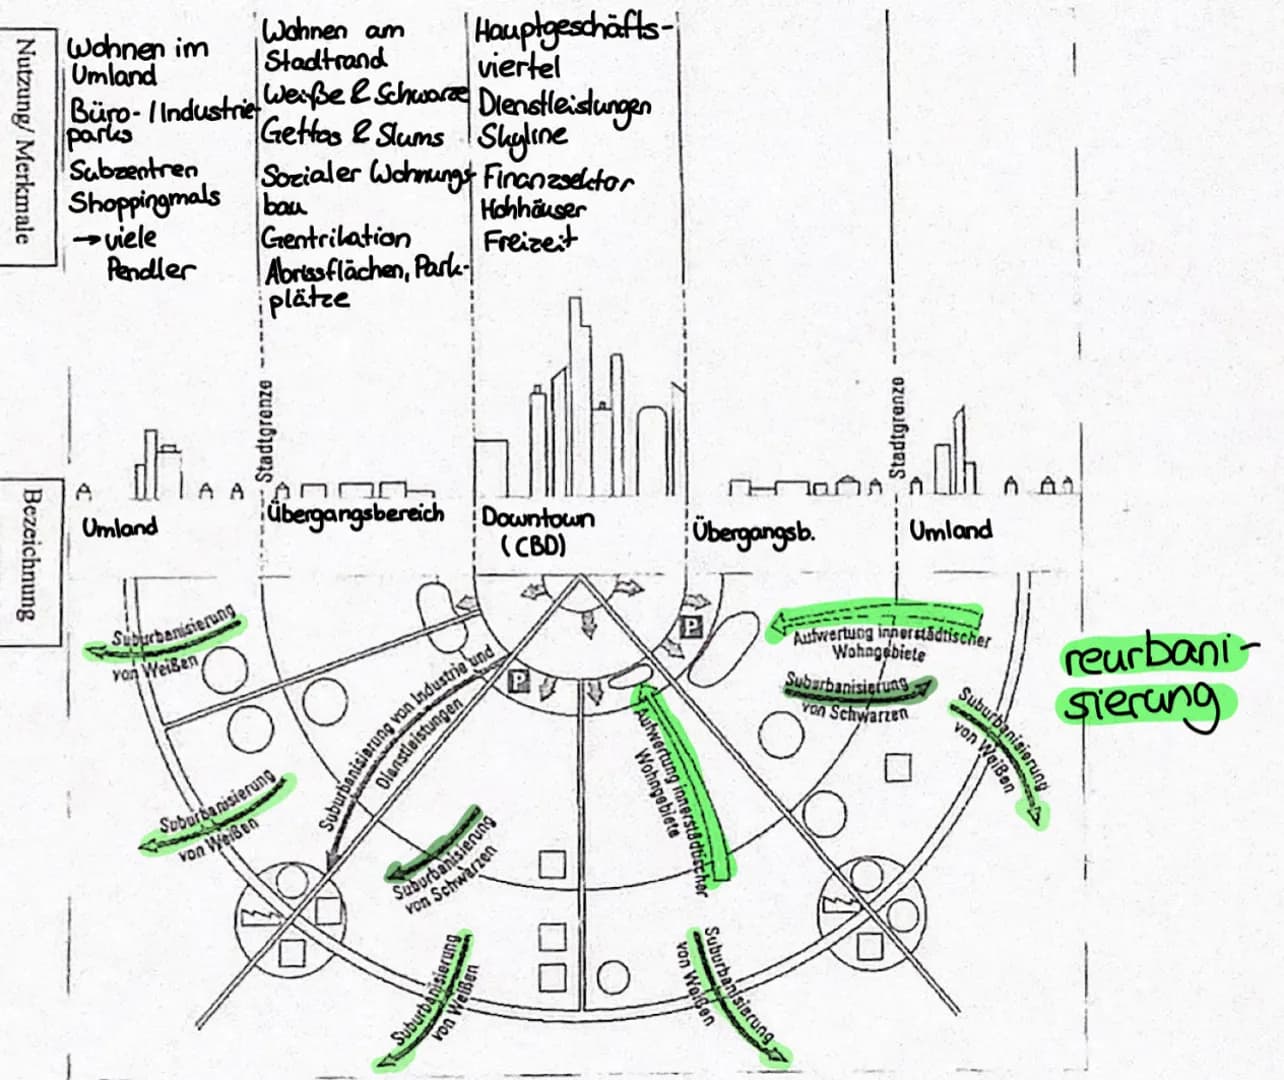 Nutzung/ Merkmale
Wohnen im
Umland
Büro- / Industrie-
parks
Subzentren
Shoppingmals
→ viele
Pendler
Wohnen am
Stadtrand
Weiße & Schwarze
Gettos & Slums
Sozialer Wohnungs
bau
Gentrikation
Abrissflächen, Park-
plätze
Hauptgeschäfts-
viertel
Dienstleistungen
Skyline
Finanzsektor
Hohhäuser
Freizeit
Stadtgrenze
Stadtgrenze
Bezeichnung
Umland
Übergangsbereich
Downtown
(CBD)
Übergangsb.
Umland
Suburbanisierung
von Weißen
Suburbanisierung von Industrie und
Dienstleistungen
P
P
Aufwertung innerstädtischer
Wohngebiete
Suburbanisierung
von Schwarzen
reurbani-
sierung
Suburbanisierung
von Weißen
Aufwertung innerstädtischer
Wohngebiete
Suburbanisierung
von Weißen
Suburbanisierung
von Schwarzen
Suburbanisierung
von Weißen
Suburbanisierung
von Weißen